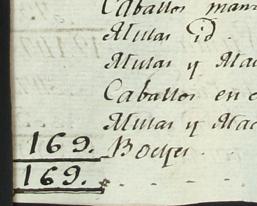 Caballos man
Mulas id.
Mulas y Mac
Caballos en
Mulas y Mac
169. Bueyes.
169.